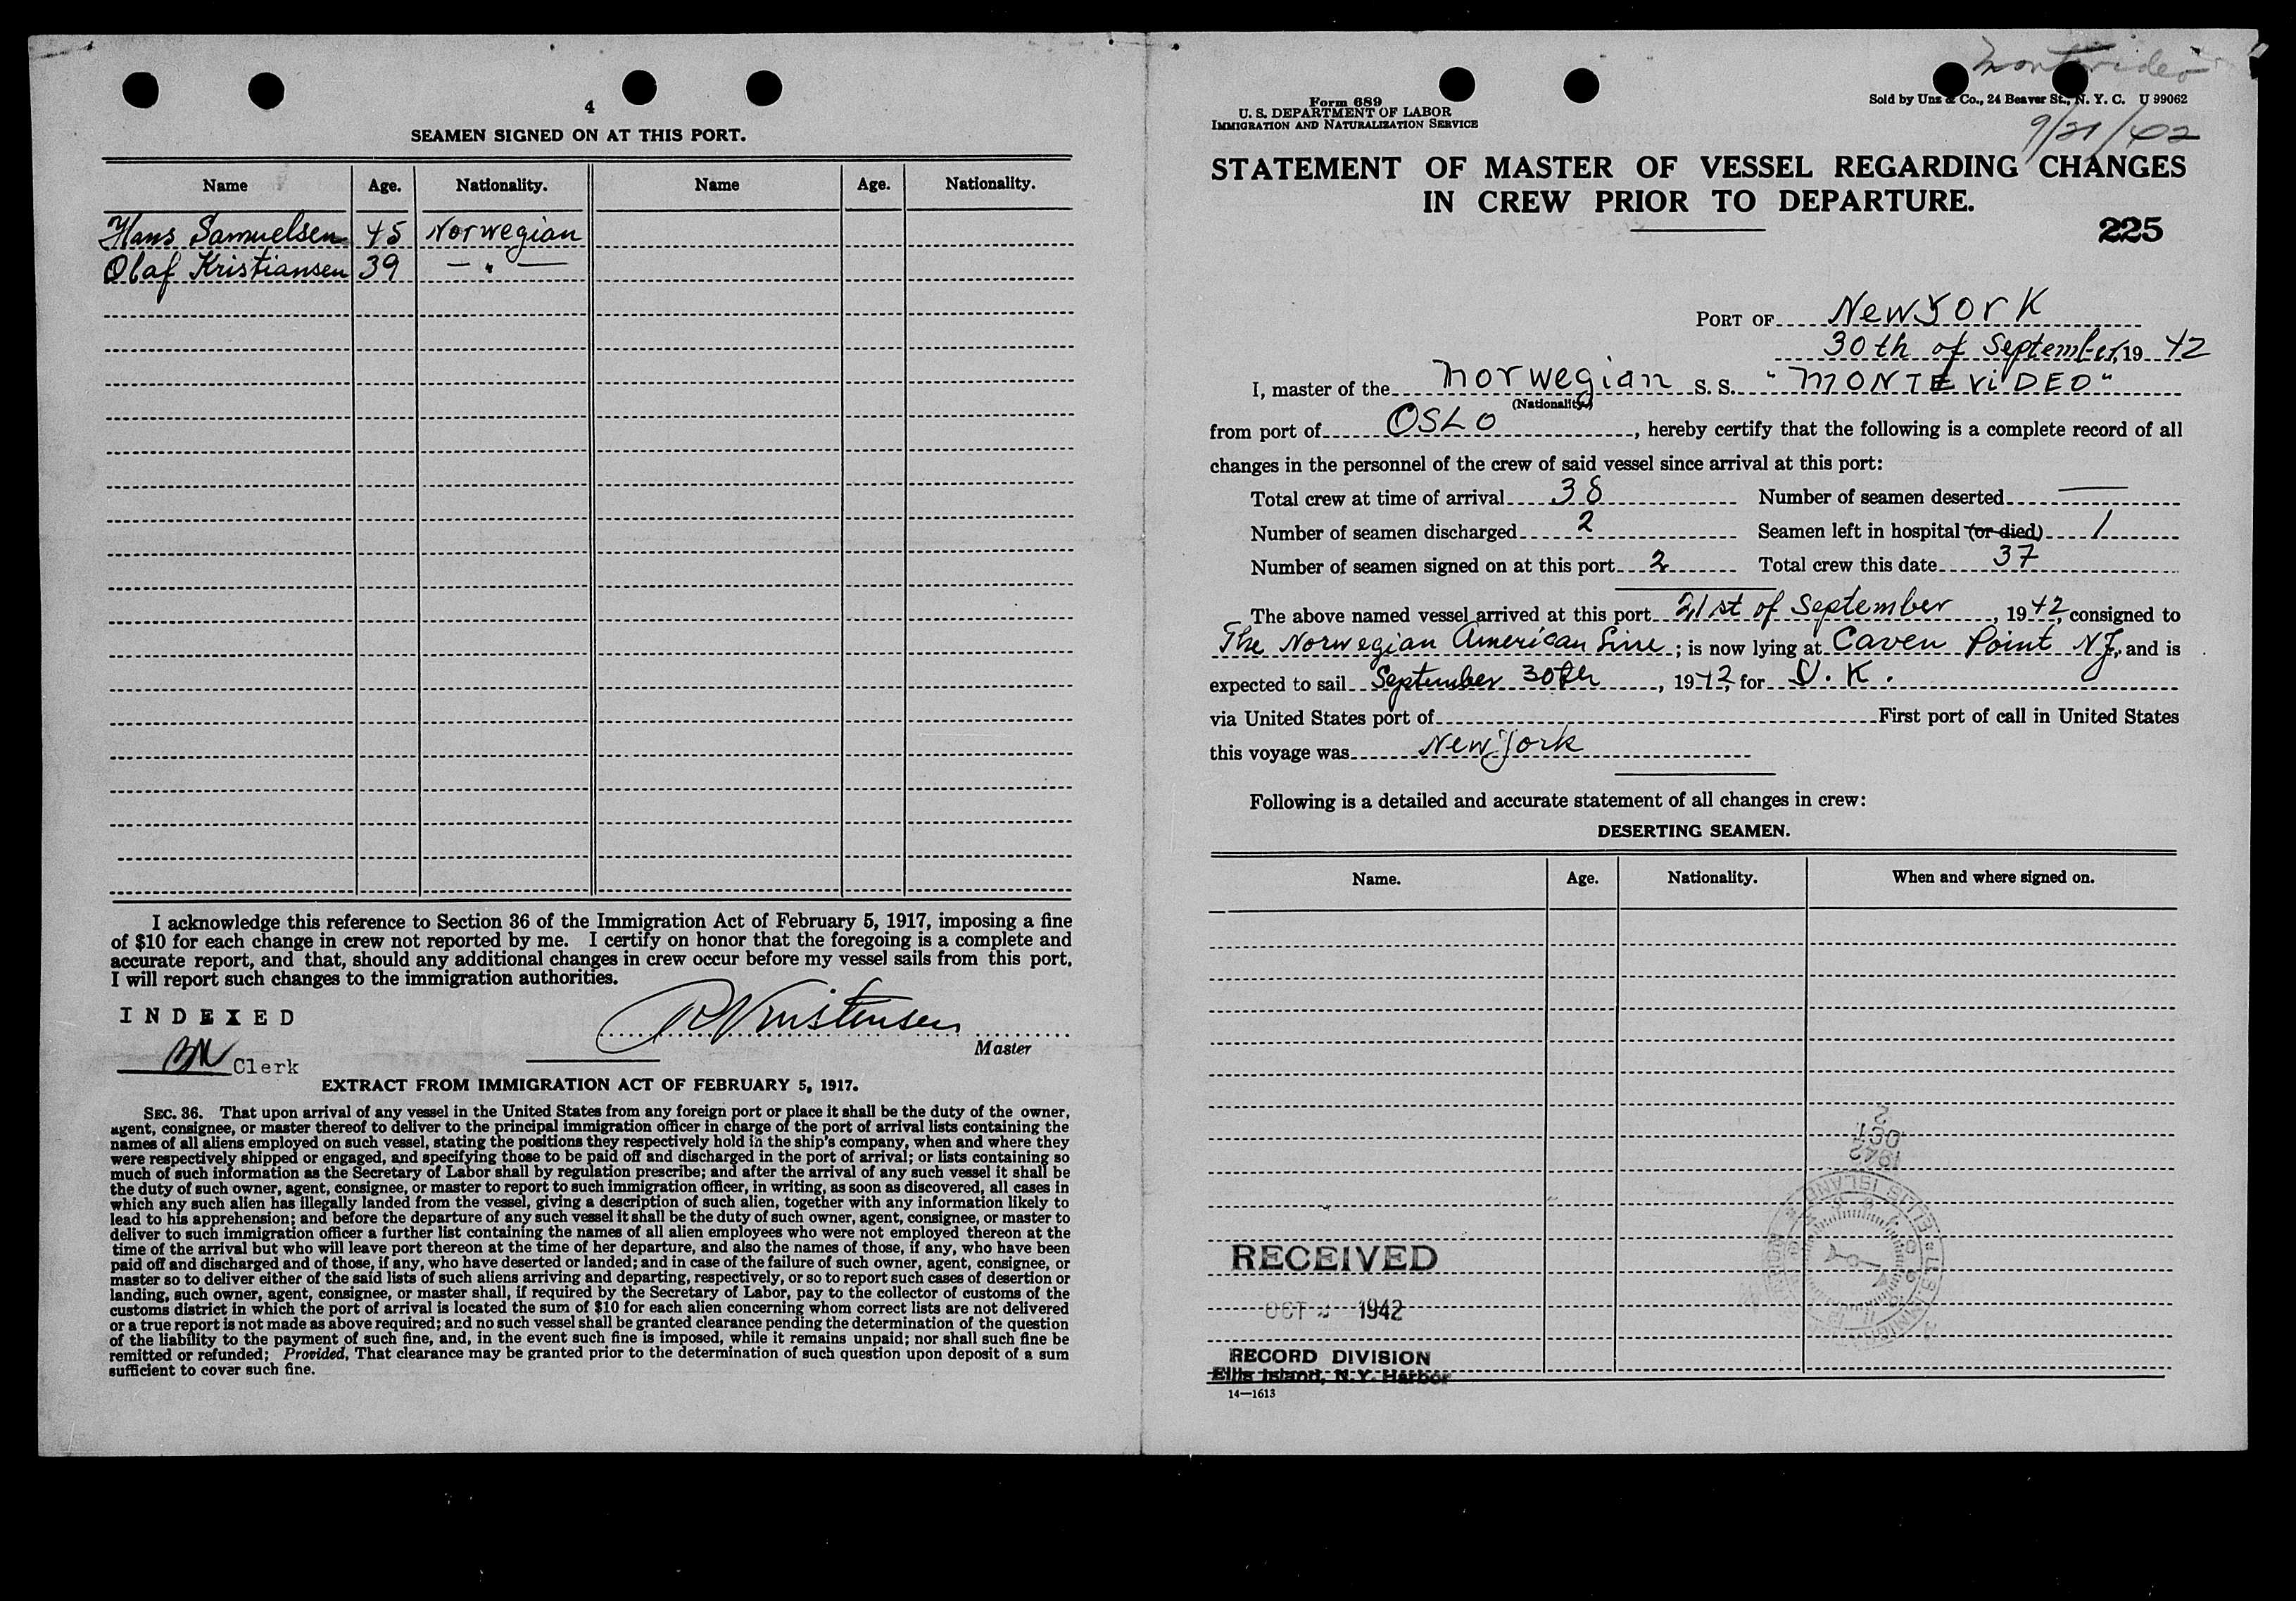 4
SEAMEN SIGNED ON AT THIS PORT.
Name Age. Nationality. Name Age. Nationality.
Hans Samuelsen 45 Norwegian
Olaf Kristiansen 39 — " —
I acknowledge this reference to Section 36 of the Immigration Act of February 5, 1917, imposing a fine
of $10 for each change in crew not reported by me. I certify on honor that the foregoing is a complete and
accurate report, and that, should any additional changes in crew occur before my vessel sails from this port,
I will report such changes to the immigration authorities.
INDEXED
Clerk
Master
EXTRACT FROM IMMIGRATION ACT OF FEBRUARY 5, 1917.
SEC. 36. That upon arrival of any vessel in the United States from any foreign port or place it shall be the duty of the owner,
agent, consignee, or master thereof to deliver to the principal immigration officer in charge of the port of arrival lists containing the
names of all aliens employed on such vessel, stating the positions they respectively hold in the ship's company, when and where they
were respectively shipped or engaged, and specifying those to be paid off and discharged in the port of arrival; or lists containing so
much of such information as the Secretary of Labor shall by regulation prescribe; and after the arrival of any such vessel it shall be
the duty of such owner, agent, consignee, or master to report to such immigration officer, in writing, as soon as discovered, all cases in
which any such alien has illegally landed from the vessel, giving a description of such alien, together with any information likely to
lead to his apprehension; and before the departure of any such vessel it shall be the duty of such owner, agent, consignee, or master to
deliver to such immigration officer a further list containing the names of all alien employees who were not employed thereon at the
time of the arrival but who will leave port thereon at the time of her departure, and also the names of those, if any, who have been
paid off and discharged and of those, if any, who have deserted or landed; and in case of the failure of such owner, agent, consignee, or
master so to deliver either of the said lists of such aliens arriving and departing, respectively, or so to report such cases of desertion or
landing, such owner, agent, consignee, or master shall, if required by the Secretary of Labor, pay to the collector of customs of the
customs district in which the port of arrival is located the sum of $10 for each alien concerning whom correct lists are not delivered
or a true report is not made as above required; and no such vessel shall be granted clearance pending the determination of the question
of the liability to the payment of such fine, and, in the event such fine is imposed, while it remains unpaid; nor shall such fine be
remitted or refunded; Provided, That clearance may be granted prior to the determination of such question upon deposit of a sum
sufficient to cover such fine.
Montevideo
Form 689
U. S. DEPARTMENT OF LABOR
IMMIGRATION AND NATURALIZATION SERVICE
Sold by Unz & Co., 24 Beaver St., N. Y. C. U 99062
9/21/42
STATEMENT OF MASTER OF VESSEL REGARDING CHANGES
IN CREW PRIOR TO DEPARTURE.
225
PORT OF New York
30th of September, 19 42
I, master of the Norwegian S. S. "MONTEViDEO"
(Nationality.)
from port of OSLO, hereby certify that the following is a complete record of all
changes in the personnel of the crew of said vessel since arrival at this port:
Total crew at time of arrival 38 Number of seamen deserted —
Number of seamen discharged 2 Seamen left in hospital (or died) 1
Number of seamen signed on at this port 2 Total crew this date 37
The above named vessel arrived at this port 21st of September, 1942, consigned to
The Norwegian American Line; is now lying at Caven Point NJ, and is
expected to sail September 30th, 1942, for U.K.
via United States port of First port of call in United States
this voyage was New York
Following is a detailed and accurate statement of all changes in crew:
DESERTING SEAMEN.
Name. Age. Nationality. When and where signed on.
2
OCT
1942
ELLIS ISLAND
RECEIVED
OCT 1942
RECORD DIVISION
Ellis Island, N.Y. Harbor
14—1613